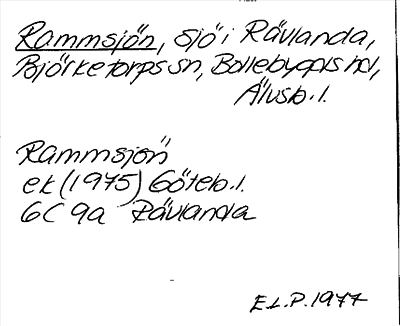 Rammsjön, sjö i Rävlanda,
Björketorps sn, Bollebygds hd,
Älvsb. l.
Rammsjön
ek (1975) Göteb. l.
6C 9a Rävlanda
E.L.P. 1977